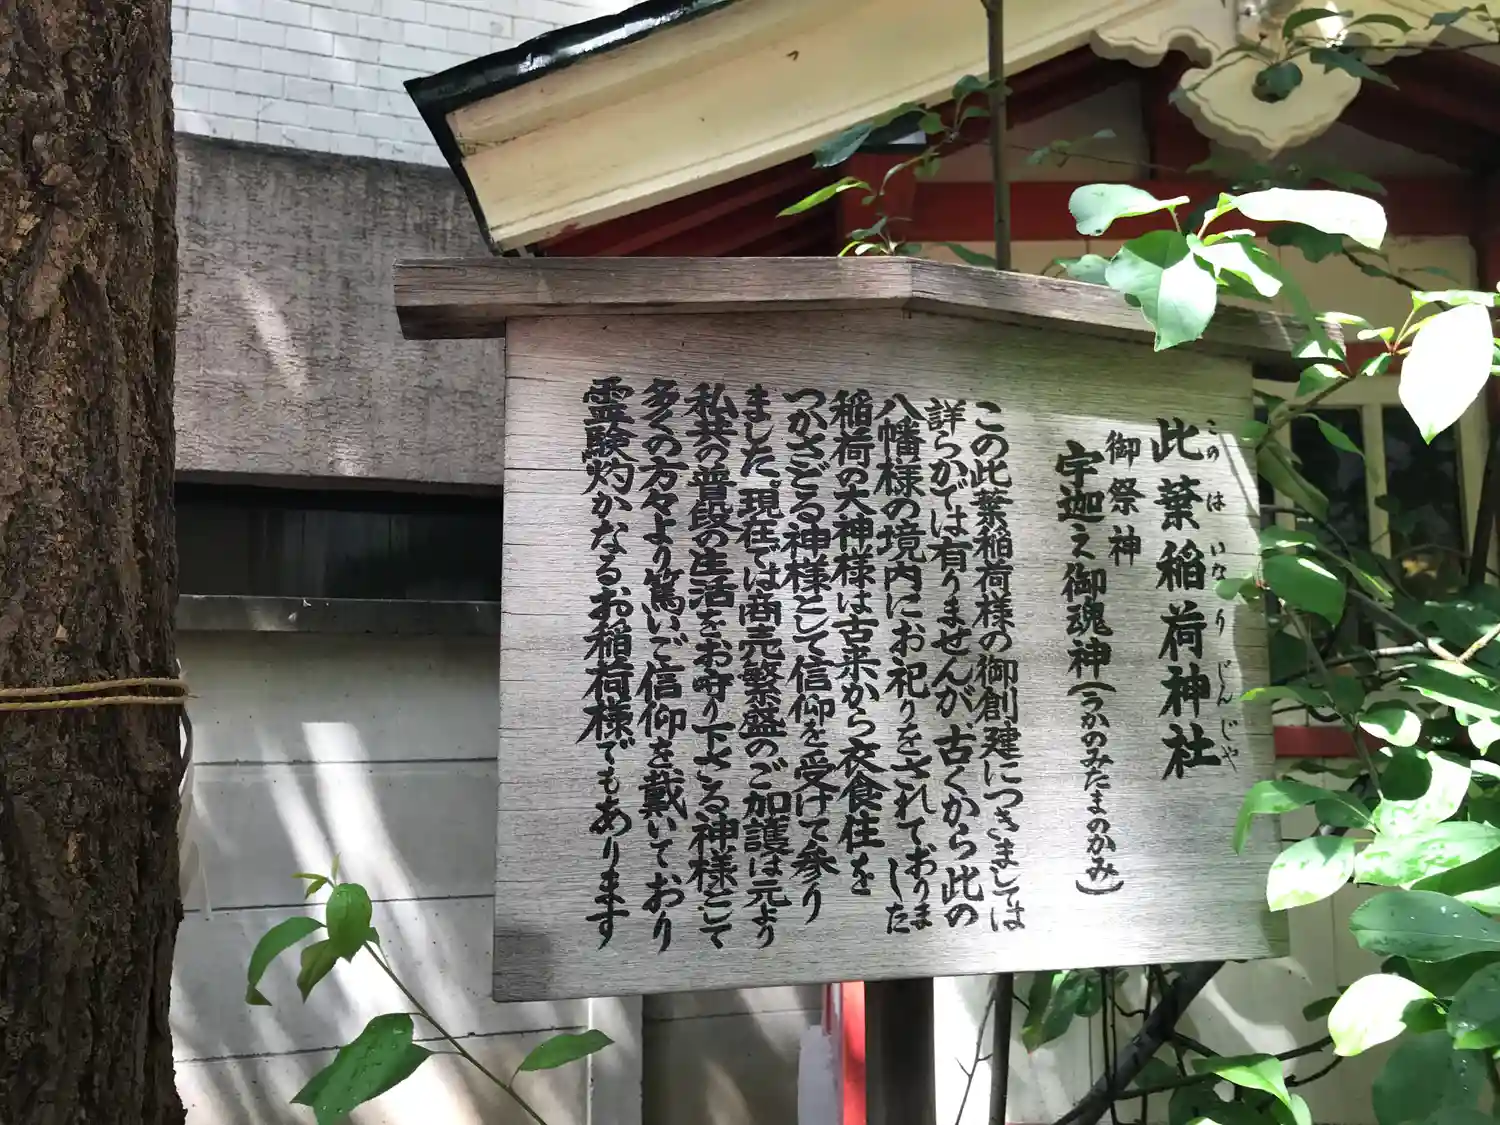 此葉稲荷神社
このは いなり じんじゃ
御祭神
宇迦之御魂神(うかのみたまのかみ)
この此葉稲荷様の御創建につきましては
詳らかでは有りませんが、古くから此の
八幡様の境内にお祀りをされておりました
稲荷の大神様は古来から衣食住を
つかさどる神様として信仰を受けて参り
ました。現在では商売繁盛のご加護は元より
私共の普段の生活をお守り下さる神様として
多くの方々より篤いご信仰を戴いており
霊験灼かなるお稲荷様でもあります